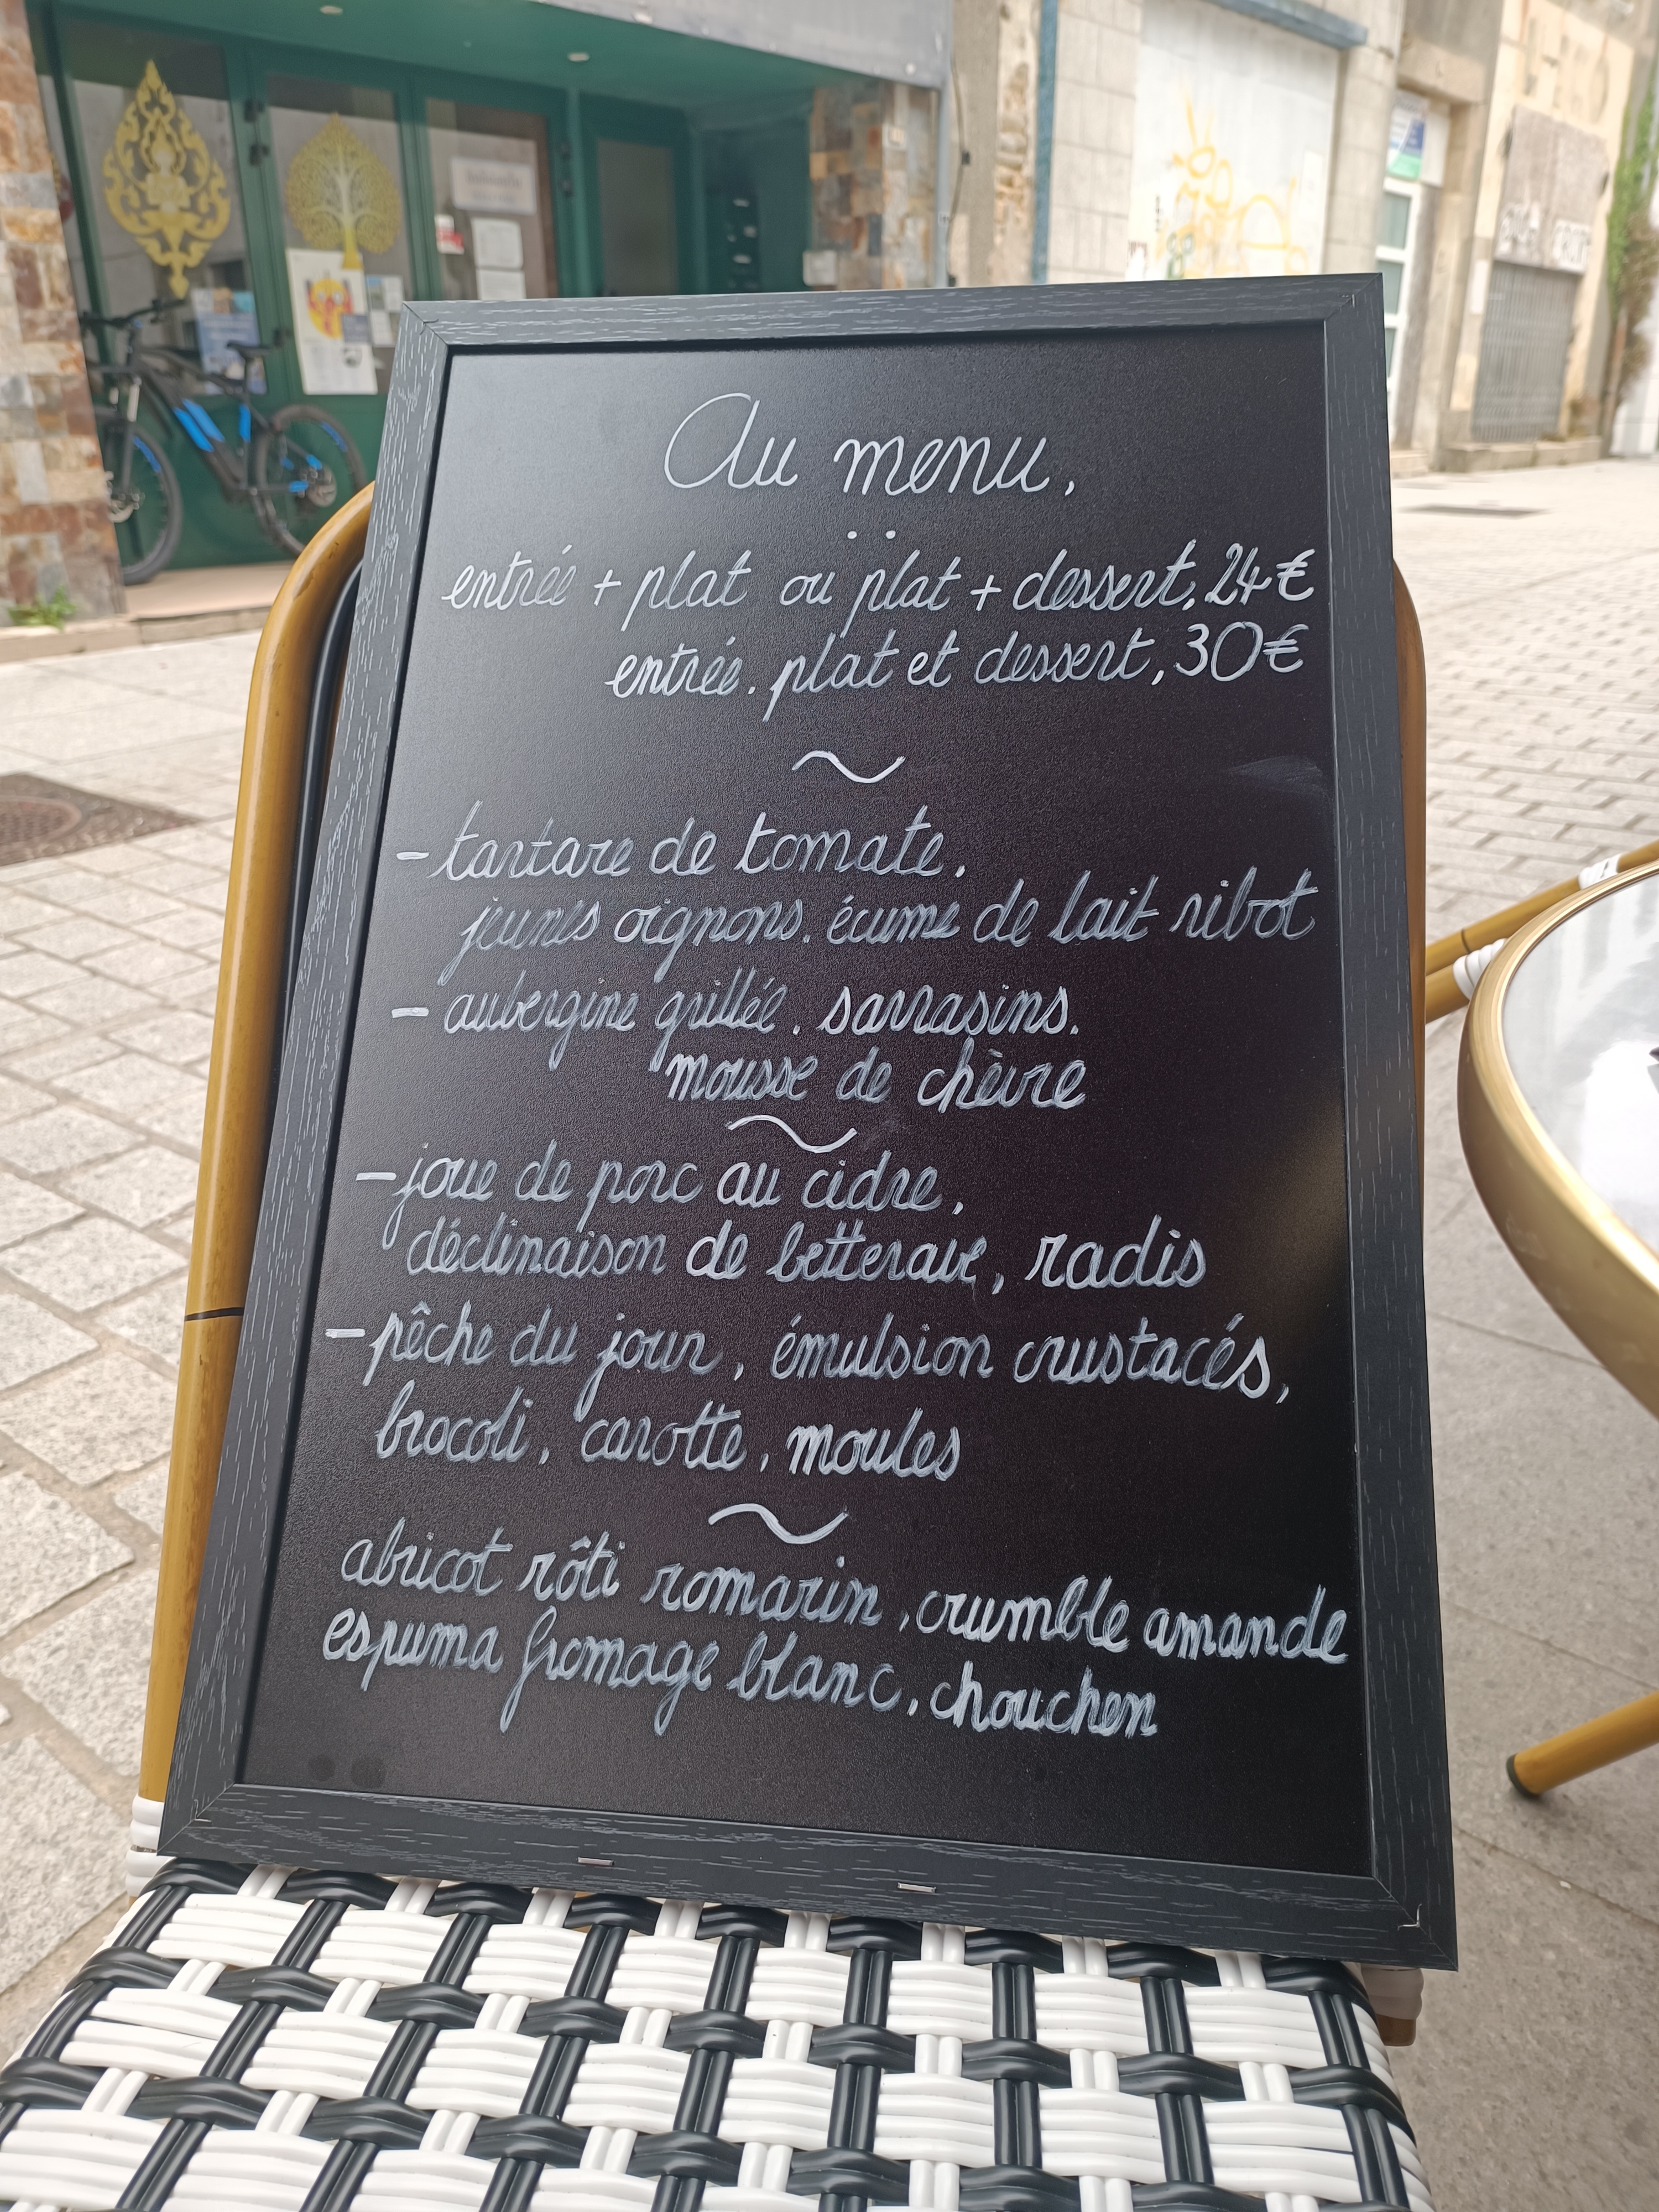 Au menu,
entrée + plat ou plat + dessert, 24€
entrée. plat et dessert, 30€
~
- tartare de tomate,
jeunes oignons. écume de lait ribot
- aubergine grillée. sarrasins.
mousse de chèvre
~
- joue de porc au cidre,
déclinaison de betterave, radis
- pêche du jour, émulsion crustacés,
brocoli, carotte, moules
~
abricot rôti romarin, crumble amande
espuma fromage blanc, chouchen